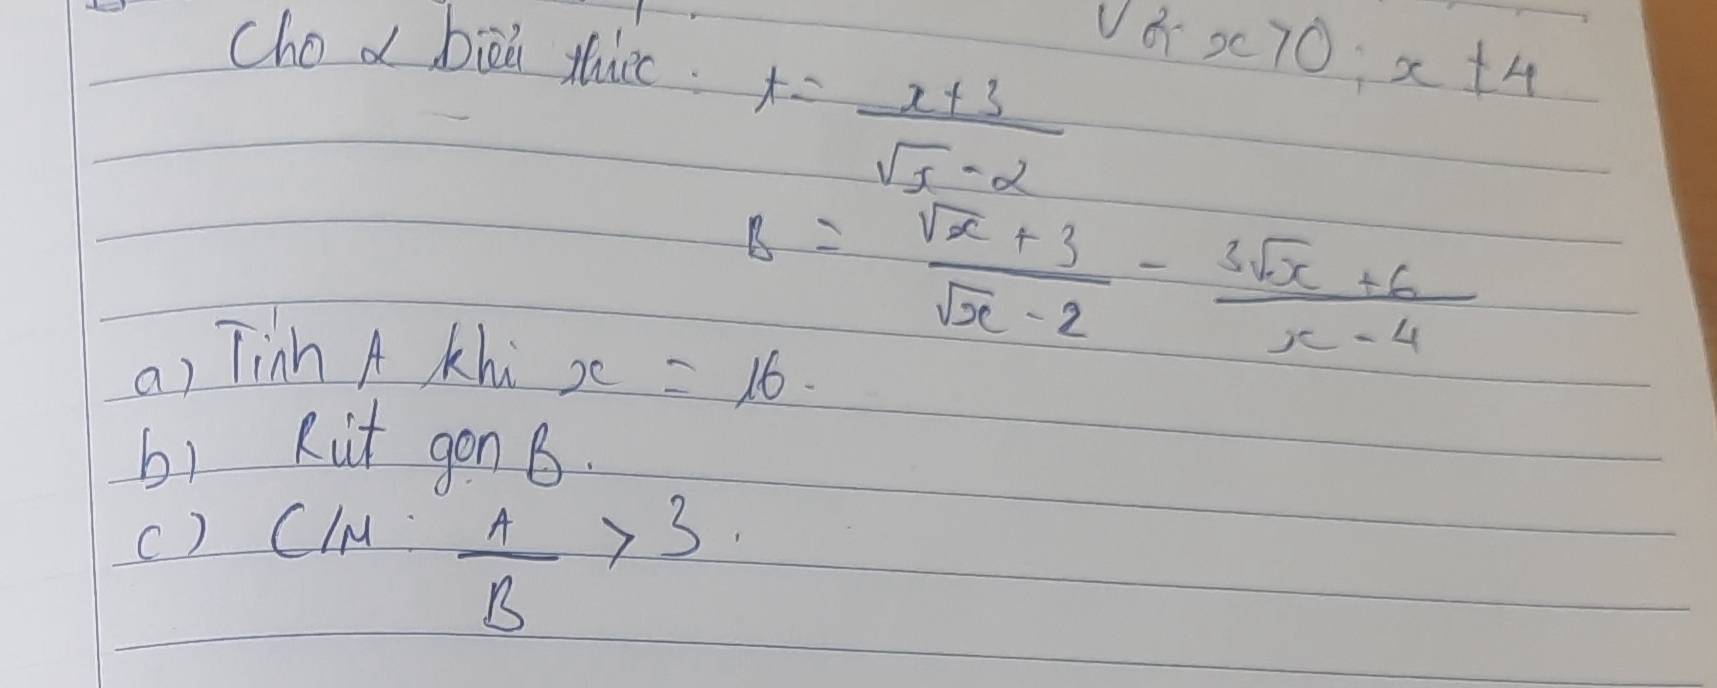 Với x > 0 ; x ≠ 4
Cho 2 biểu thức : A = \frac{x+3}{\sqrt{x} - 2}
B = \frac{\sqrt{x} + 3}{\sqrt{x} - 2} - \frac{3\sqrt{x} + 6}{x - 4}
a) Tính A khi x = 16.
b) Rút gọn B.
c) C/M : \frac{A}{B} > 3.